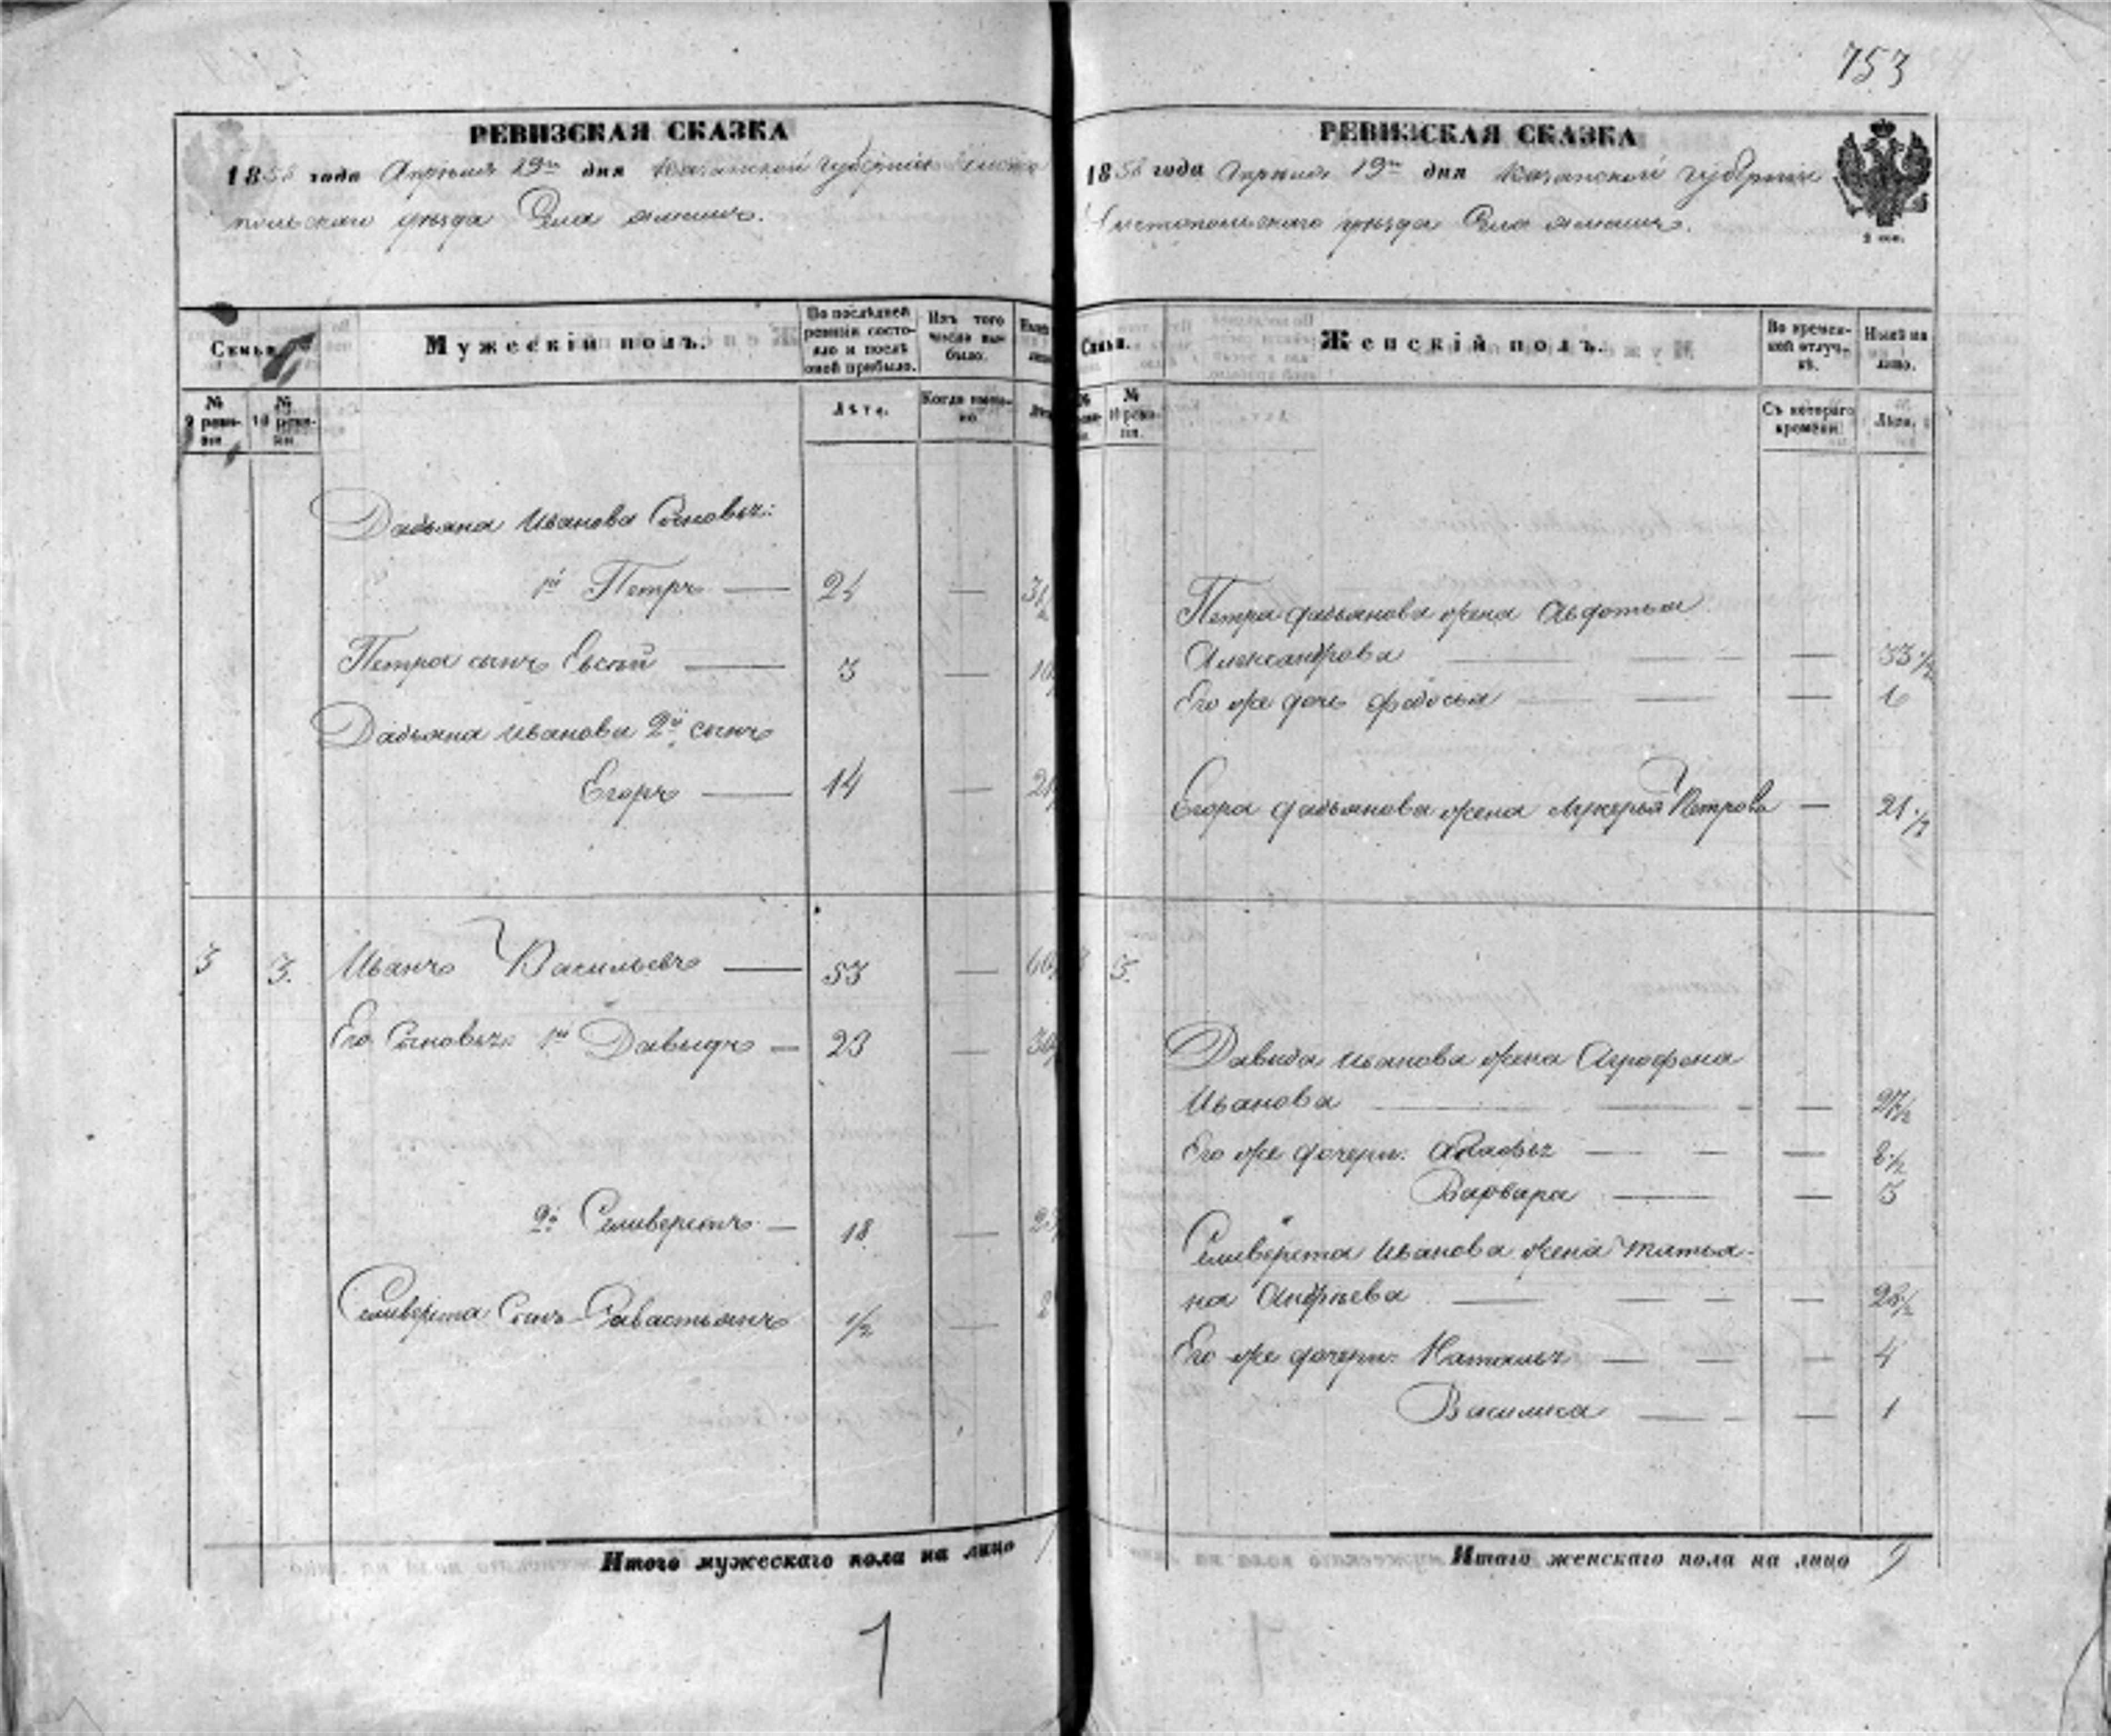 753
РЕВИЗСКАЯ СКАЗКА
1858 года Апреля 19го дня Казанской Губернии Чисто
польскаго уезда Села
Семьи.
Мужескій полъ.
По послѣдней ревизіи состояло и послѣ оной прибыло.
Изъ того числа выбыло.
№ 9 ревизіи.
№ 10 ревизіи.
Лѣта.
Когда именно.
Дадьяна Иванова Сыновья:
1й Петръ — 24 —
Петра сынъ Евсей — 3 —
Дадьяна Иванова 2й сынъ
Егоръ — 14 —
3 3. Иванъ Васильевъ — 53 —
Его Сыновья 1й Давыдъ — 23 —
2й Селиверстъ — 18 —
Селиверста Сынъ Савастьянъ 1/2 —
Итого мужескаго пола на лицо
7
РЕВИЗСКАЯ СКАЗКА
1858 года Апреля 19го дня Казанской Губернии
Чистопольскаго уезда Села
2 сер.
Семьи.
Женскій полъ.
Во временной отлучкѣ.
Нынѣ на лицо.
№ 10 ревизіи.
Съ котораго времени.
Лѣта.
Петра Дадьянова жена Авдотья
Александрова — 33 1/2
Его же дочь Федосья — 6
Егора Дадьянова жена Лукерья Петрова — 21 1/2
3.
Давида Иванова жена Аграфена
Иванова — 27 1/2
Его же дочери: — 8 1/2
Варвара — 3
Селиверста Иванова жена Татья-
на Андреева — 28 1/2
Его же дочери: Наталья — 4
Василиса — 1
Итого женскаго пола на лицо 9